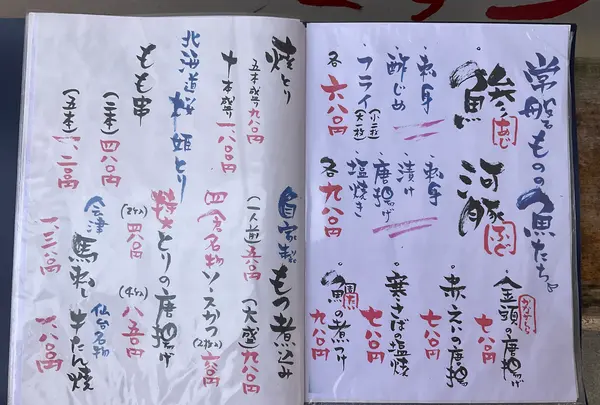 常磐ものの魚たち
鰺
あじ
・刺身
・酢じめ
・フライ(小二枚 大一枚)
各 六八〇円
河豚
ふぐ
・刺身
・漬け
・唐揚げ
・塩焼き
各 九八〇円
・金頭の唐揚げ
かながしら
七八〇円
・赤えいの唐揚げ
七八〇円
・寒さばの塩焼
七八〇円
・魚の煮つけ
九八〇円
焼とり
五本盛り 九八〇円
十本盛り 一八〇〇円
北海道桜姫とり
もも串
(二本) 四八〇円
(五本) 一、一二〇円
自家製もつ煮込み
(一人前) 五八〇円
(大盛) 九八〇円
四倉名物ソースかつ
(2枚) 六八〇円
特大とりの唐揚げ
(2ケ) 四八〇円
(4ケ) 八五〇円
会津
馬刺し
一、三八〇円
仙台名物
牛たん焼
一、六八〇円